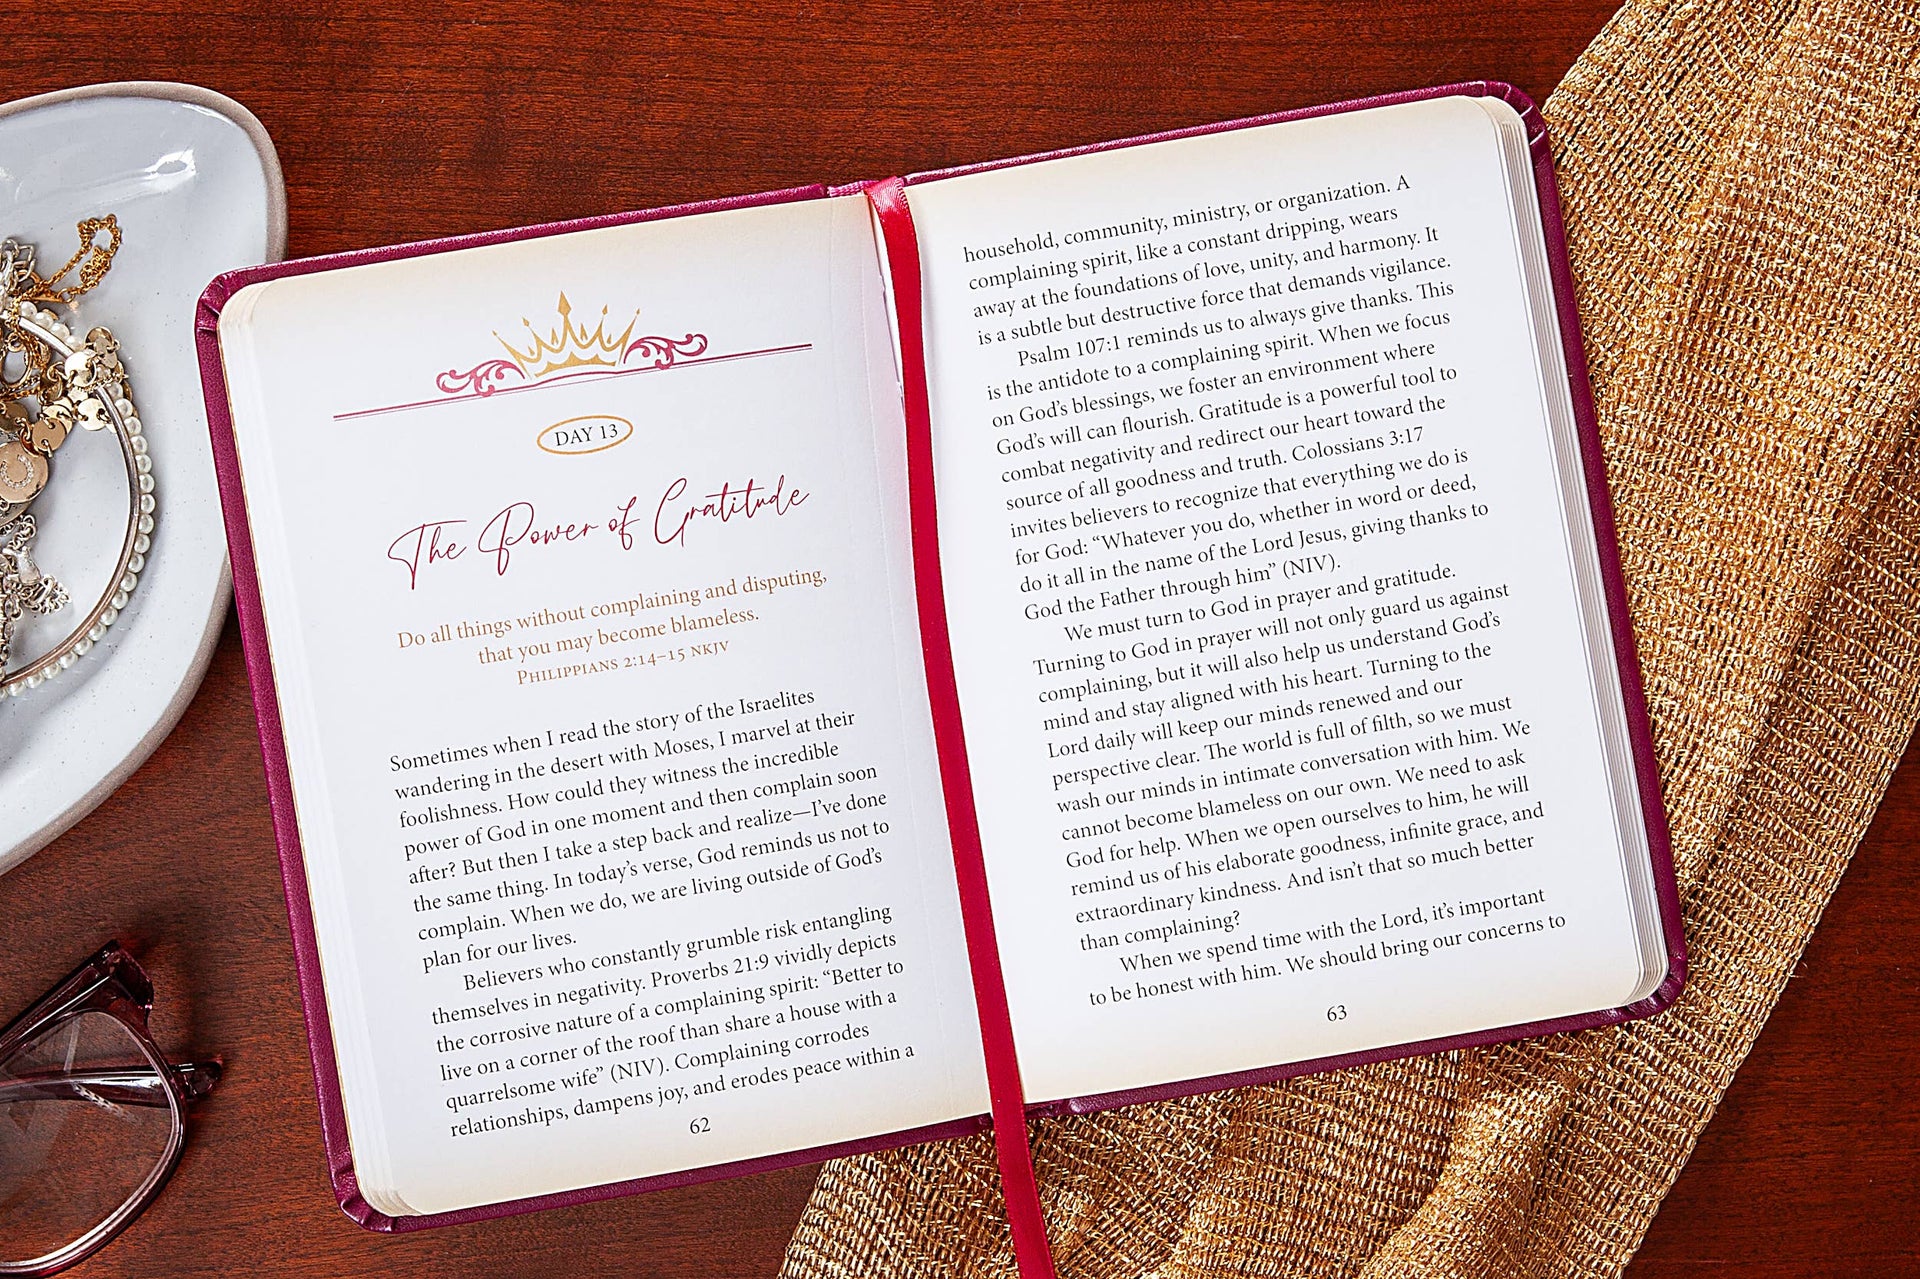 DAY 13
The Power of Gratitude
Do all things without complaining and disputing,
that you may become blameless.
Philippians 2:14–15 NKJV
Sometimes when I read the story of the Israelites
wandering in the desert with Moses, I marvel at their
foolishness. How could they witness the incredible
power of God in one moment and then complain soon
after? But then I take a step back and realize—I’ve done
the same thing. In today’s verse, God reminds us not to
complain. When we do, we are living outside of God’s
plan for our lives.
Believers who constantly grumble risk entangling
themselves in negativity. Proverbs 21:9 vividly depicts
the corrosive nature of a complaining spirit: “Better to
live on a corner of the roof than share a house with a
quarrelsome wife” (NIV). Complaining corrodes
relationships, dampens joy, and erodes peace within a
62
household, community, ministry, or organization. A
complaining spirit, like a constant dripping, wears
away at the foundations of love, unity, and harmony. It
is a subtle but destructive force that demands vigilance.
Psalm 107:1 reminds us to always give thanks. This
is the antidote to a complaining spirit. When we focus
on God’s blessings, we foster an environment where
God’s will can flourish. Gratitude is a powerful tool to
combat negativity and redirect our heart toward the
source of all goodness and truth. Colossians 3:17
invites believers to recognize that everything we do is
for God: “Whatever you do, whether in word or deed,
do it all in the name of the Lord Jesus, giving thanks to
God the Father through him” (NIV).
We must turn to God in prayer and gratitude.
Turning to God in prayer will not only guard us against
complaining, but it will also help us understand God’s
mind and stay aligned with his heart. Turning to the
Lord daily will keep our minds renewed and our
perspective clear. The world is full of filth, so we must
wash our minds in intimate conversation with him. We
cannot become blameless on our own. We need to ask
God for help. When we open ourselves to him, he will
remind us of his elaborate goodness, infinite grace, and
extraordinary kindness. And isn’t that so much better
than complaining?
When we spend time with the Lord, it’s important
to be honest with him. We should bring our concerns to
63